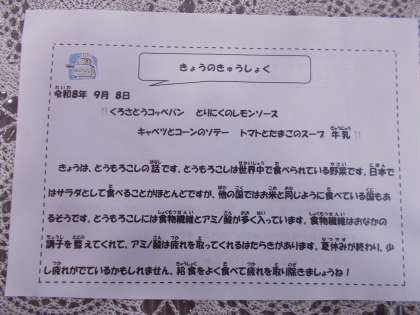 きょうのきゅうしょく
令和8年 9月 8日
くろさとうコッペパン とりにくのレモンソース
キャベツとコーンのソテー トマトとたまごのスープ 牛乳
きょうは、とうもろこしの話です。とうもろこしは世界中で食べられている野菜です。日本で
はサラダとして食べることがほとんどですが、他の国ではお米と同じように食べている国もあ
るそうです。とうもろこしには食物繊維とアミノ酸が多く入っています。食物繊維はおなかの
調子を整えてくれて、アミノ酸は疲れを取ってくれるはたらきがあります。夏休みが終わり、少
し疲れがでているかもしれません。給食をよく食べて疲れを取り除きましょうね！